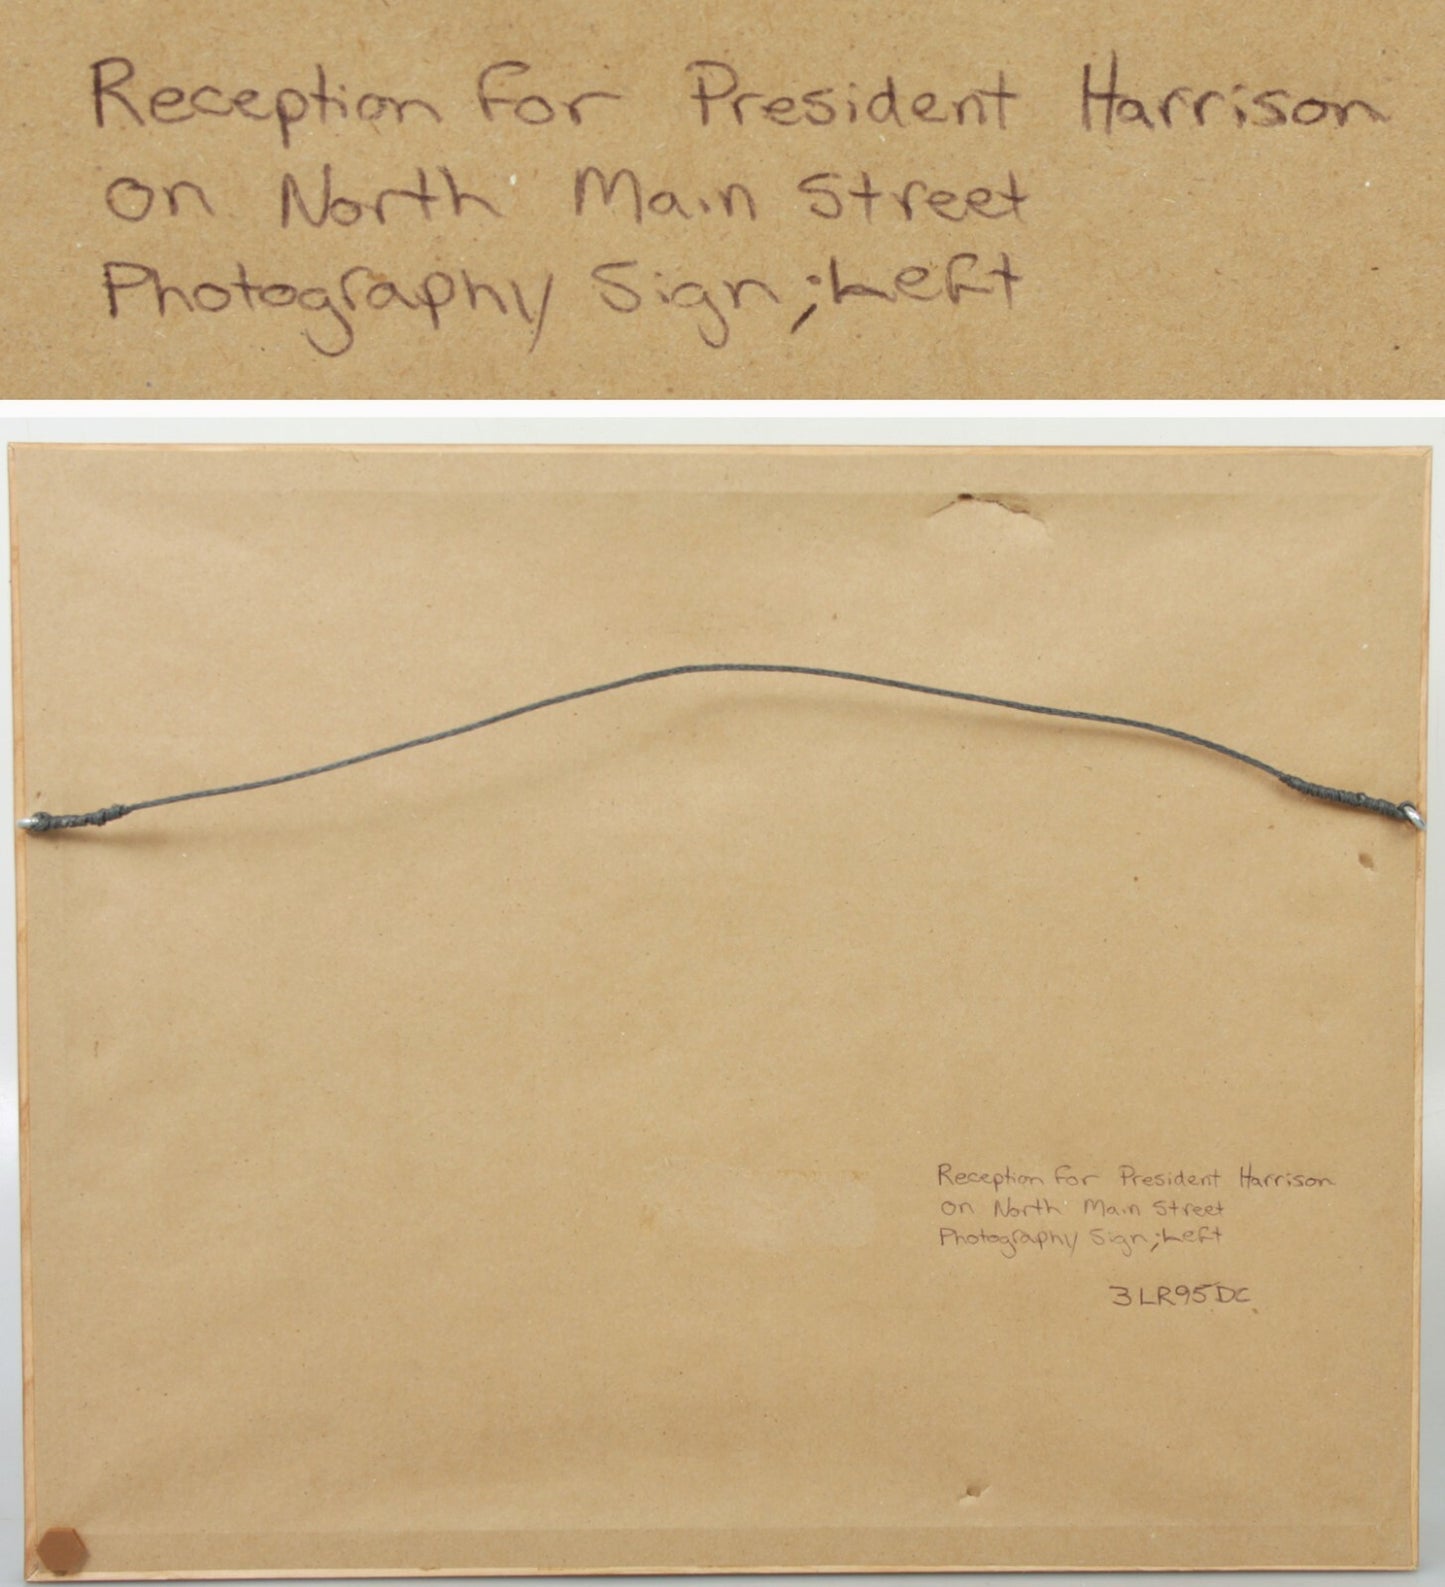 Reception for President Harrison
on North Main Street
Photography Sign; Left
Reception for President Harrison
on North Main Street
Photography Sign; Left
3LR95DC